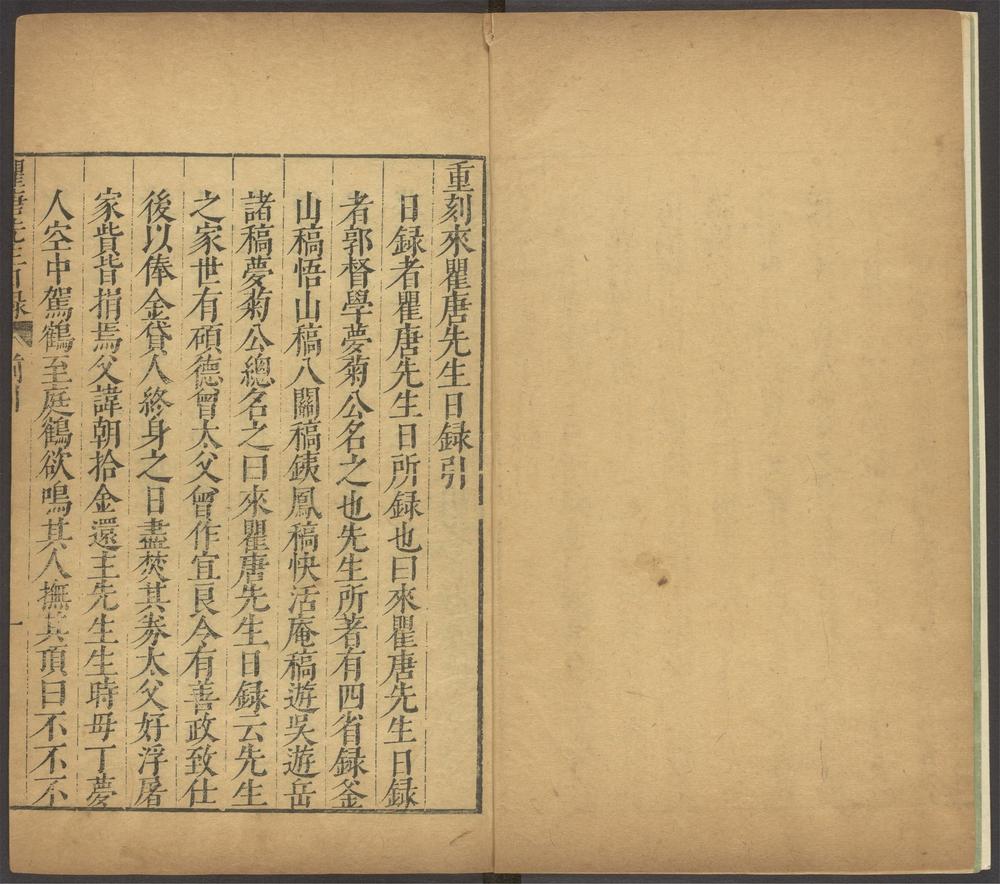 重刻來瞿唐先生日録引
日録者瞿唐先生日所録也曰來瞿唐先生日録
者郭督學夢菊公名之也先生所著有四省録釜
山稿悟山稿八關稿鋏鳳稿快活庵稿遊吳遊岳
諸稿夢菊公總名之曰來瞿唐先生日録云先生
之家世有碩德曾太父曾作宜良令有善政致仕
後以俸金貸人終身之日盡焚其券太父好浮屠
家貲皆捐焉父諱朝拾金還主先生生時母丁夢
人空中駕鶴至庭鶴欲鳴其人撫其頂曰不不不
瞿唐先生日録 一